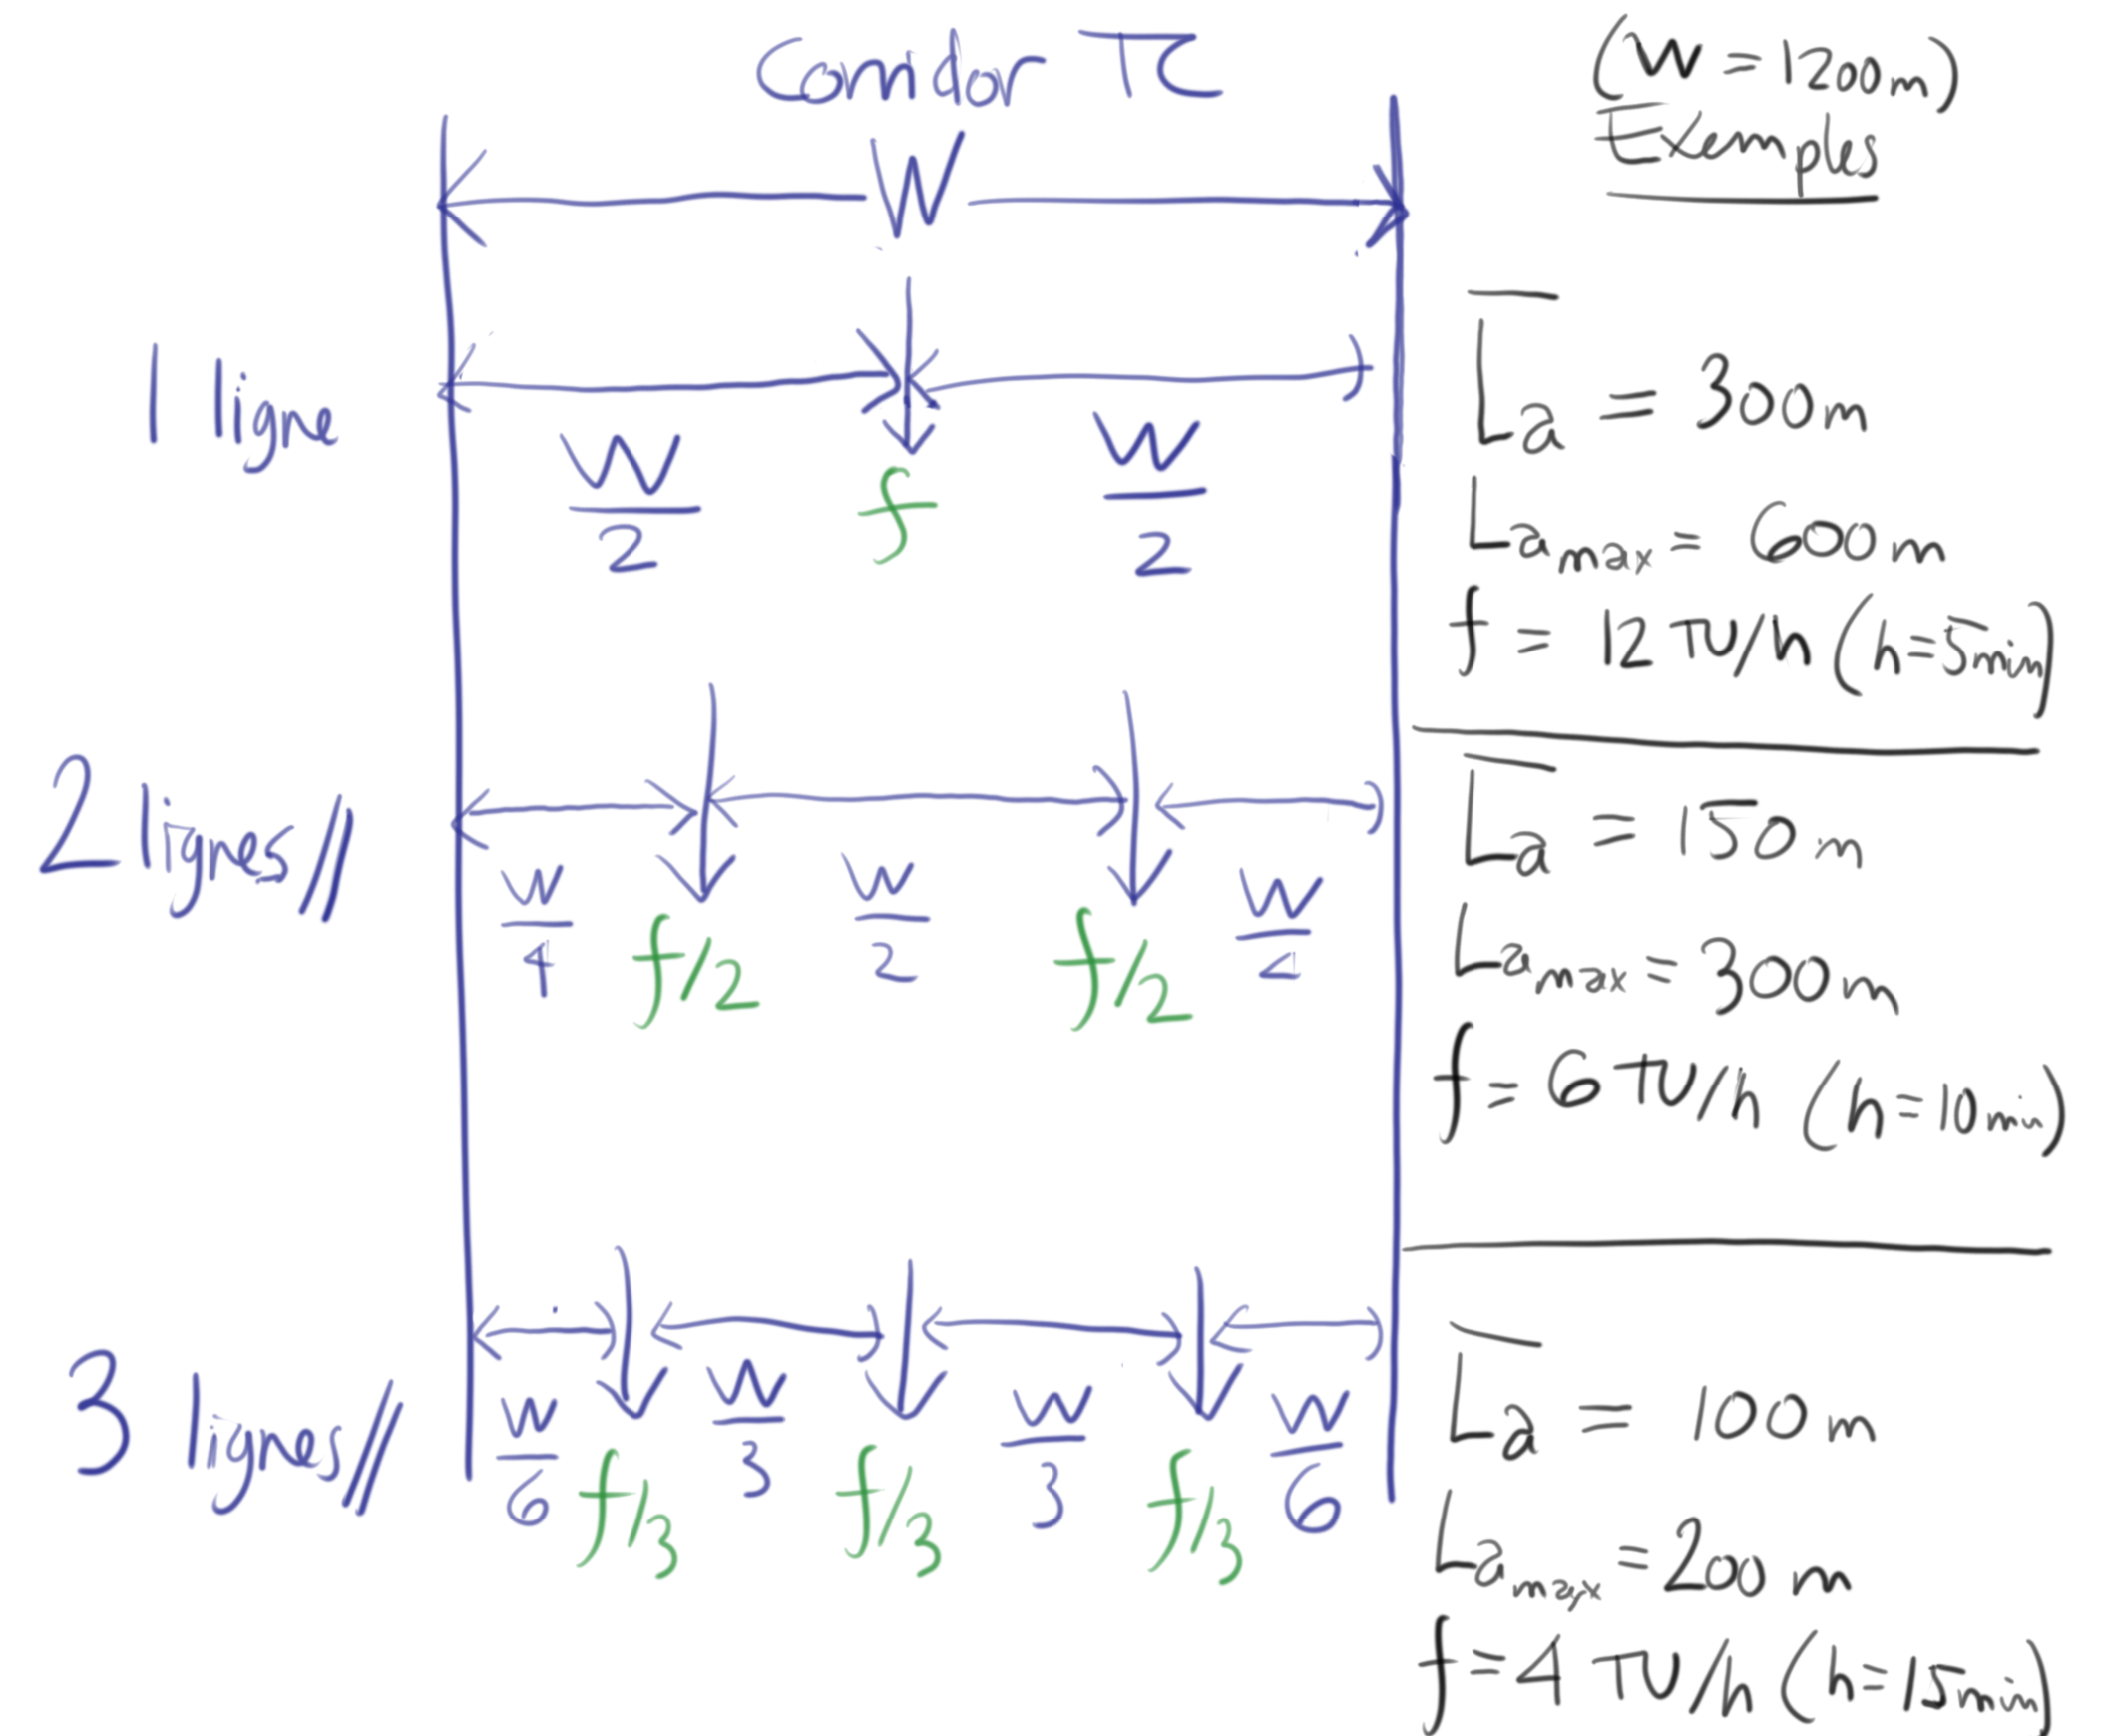 Corridor TC
(W = 1200m)
Exemples
W
1 ligne
W/2 f W/2
L̅a = 300 m
La max = 600 m
f = 12 TU/h (h=5min)
2 lignes //
W/4 f/2 W/2 f/2 W/4
L̅a = 150 m
La max = 300 m
f = 6 TU/h (h=10min)
3 lignes //
W/6 f/3 W/3 f/3 W/3 f/3 W/6
L̅a = 100 m
La max = 200 m
f = 4 TU/h (h=15min)